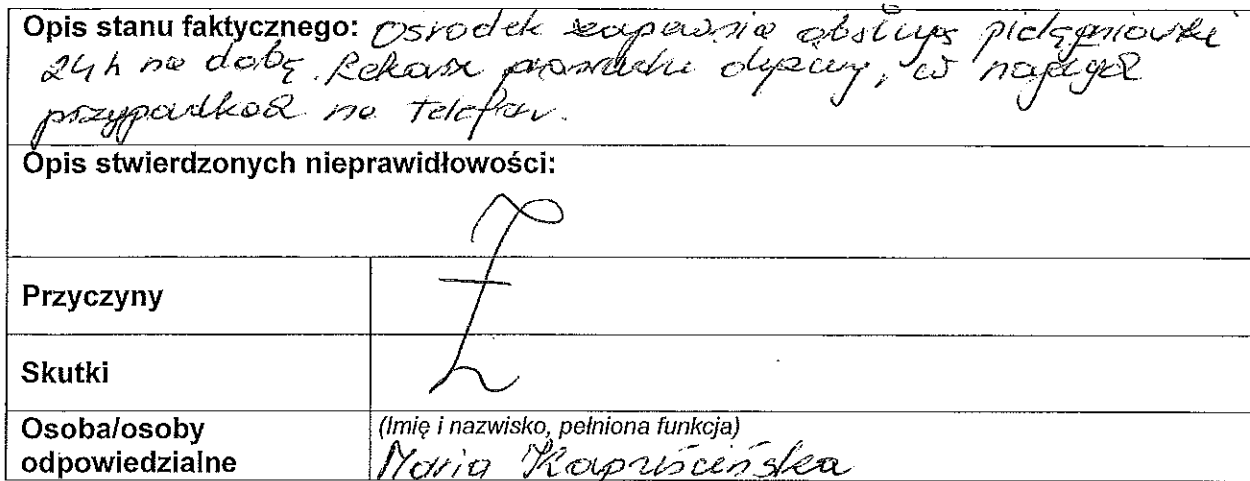 Opis stanu faktycznego: Ośrodek zapewnia obsługę pielęgniarki
24h na dobę. Lekarz dyżury, w nagłych
przypadkach na telefon.
Opis stwierdzonych nieprawidłowości:
Przyczyny
Skutki
Osoba/osoby
odpowiedzialne
(Imię i nazwisko, pełniona funkcja)
Maria